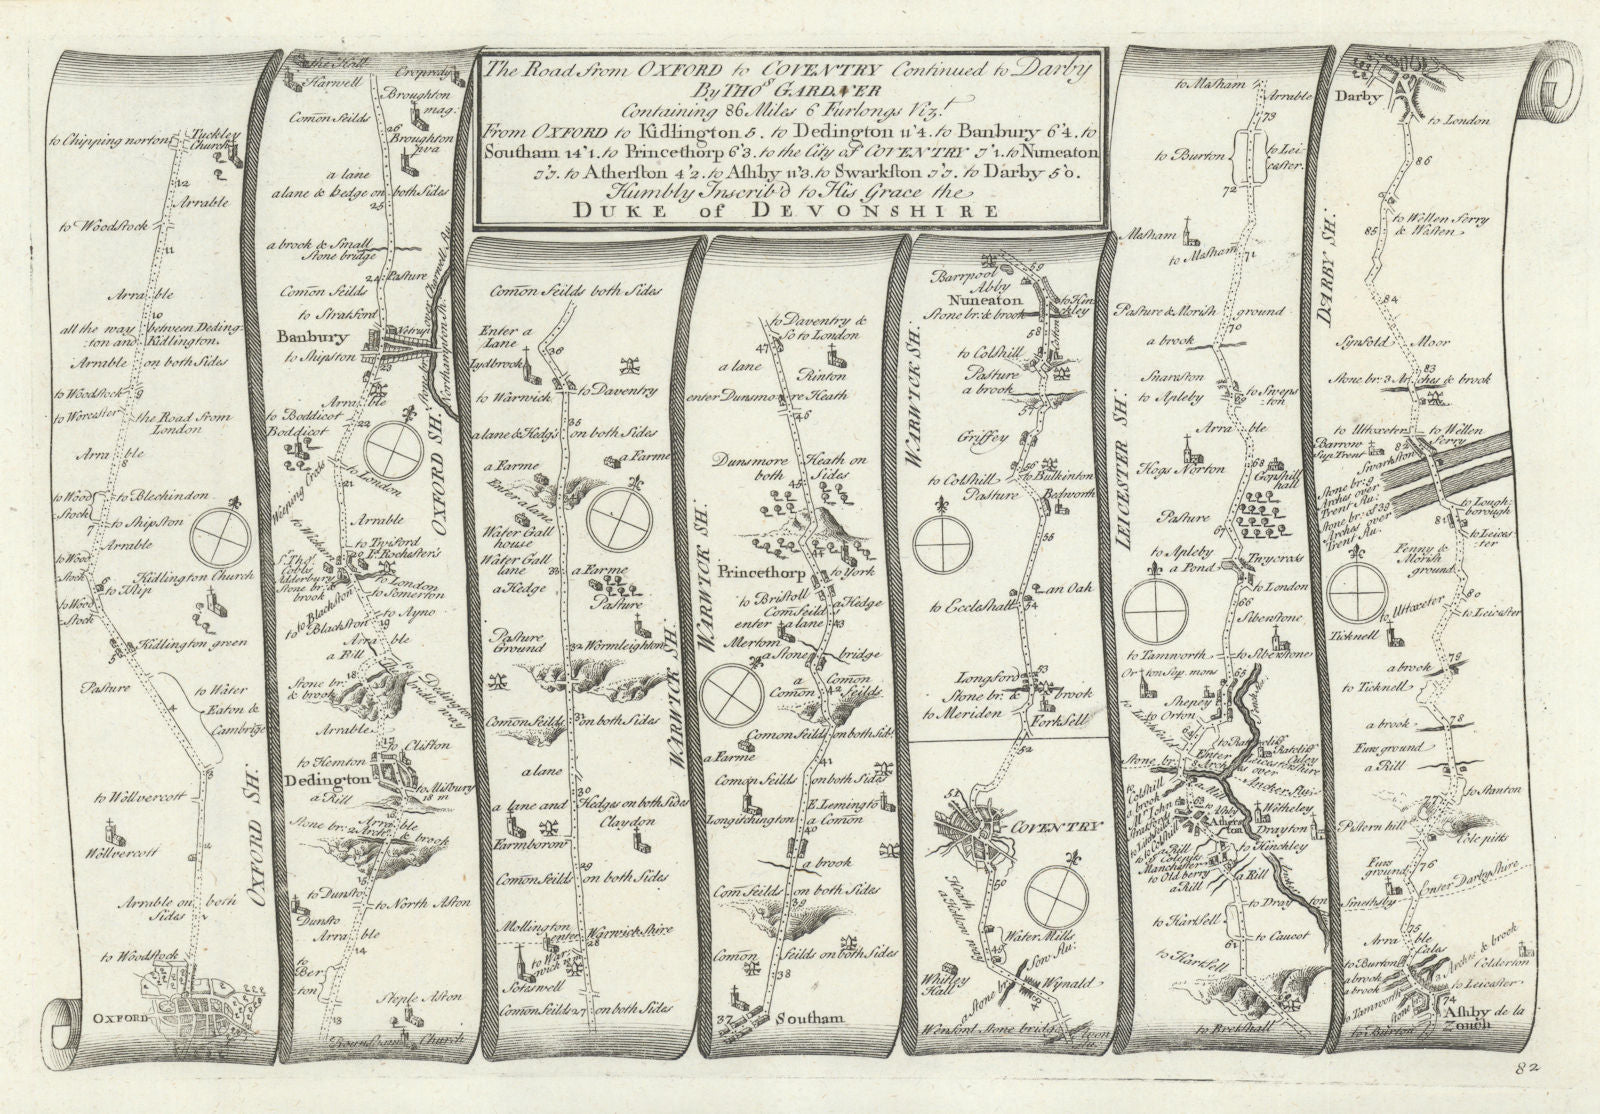 The Road from OXFORD to COVENTRY Continued to Darby
By THO.S GARDNER
Containing 86 Miles 6 Furlongs Viz.t
From OXFORD to Kidlington 5. to Dedington 11'4. to Banbury 6'4. to
Southam 14'1. to Princethorp 6'3. to the City of COVENTRY 7'1. to Nuneaton
7'7. to Atherston 4'2. to Ashby 11'3. to Swarkston 7'7. to Darby 5'0.
Humbly Inscrib'd to His Grace the
DUKE of DEVONSHIRE
to Chipping norton
Tuckley
Church
12
Arrable
to Woodstock
11
Arrable
10
all the way between Deding-
ton and Kidlington.
Arrable on both Sides
to Woodstock
9
to Worcester
the Road from
London
Arrable
8
to Wood
Stock
to Blechindon
7
to Shipston
Arrable
to Wood
Stock
6
to Islip
Kidlington Church
to Wood
Stock
5
Kidlington green
Pasture
to Water
Eaton &
Cambridge
4
3
to Wollvercott
Wollvercott
2
Arrable on both
Sides
1
to Woodstock
OXFORD
OXFORD SH:
the Hall
Harwell
Cropredy
Broughton
mag:
Comon feilds
26
Broughton
pva
a lane
a lane & hedge on both Sides
25
a brook & Small
Stone bridge
24
Pasture
Comon Feilds
to Stratford
Banbury
to Shipston
Northampton Sh.
23
Arrable
to Boddicot
22
Boddicot
to London
Weeping Cross
21
OXFORD SH:
Arrable
to Twiford
L.d Rochester's
to Wickam
Adderbury
Stone br: &
brook
to London
to Somerton
to Blackston
to Blackston
to Ayno
19
Arrable
a Rill
18
Stone br:
& brook
to Dedington
bridle way
Arrable
17
to Clifton
to Hemton
Dedington
a Rill
to Misbury
16 m
Arrable
Stone br: 2 Arch: & brook
15
to Dunsto
to North Aston
Dunsto
Arrable
14
to
Ber
ton
Steple Aston
13
Rounsham Church
Comon Feilds both Sides
Enter a
Lane
36
Lydbrook
to Warwick
to Daventry
35
a lane & Hedg's on both Sides
a Farme
a Farme
34
Enter a lane
Water Gall
house
Water Gall
lane
33
a Farme
a Hedge
Pasture
Pasture
Ground
32
Wormleighton
Comon Feilds
31
on both Sides
a lane
30
a lane and Hedges on both Sides
Claydon
Farmborow
29
Comon Feilds on both Sides
Mollington
enter Warwickshire
28
to War-
wick
Sotaswell
Comon Feilds 27 on both Sides
WARWICK SH:
to Daventry &
So to London
47
a lane
Rinton
enter Dunsmore Heath
46
Dunsmore Heath on
both Sides
45
44
Princethorp
to York
to Bristoll
a Hedge
Com Feild
enter a lane
43
Mertom
a Stone bridge
a Comon
Comon
Feilds
42
Comon Feilds on both Sid:
a Farme
41
Comon Feilds on both Sides
Longitchington
E. Lemington
a Comon
40
a brook
Com Feilds on both Sides
39
Comon Feilds on both Sides
38
37
Southam
WARWICK SH:
Barrpool
Abby
59
Nuneaton
Stone br: & brook
to Hin-
ckley
58
to Colshill
Pasture
a brook
57
Griffey
56
to Colshill
to Bulkinton
Pasture
Bedworth
55
an Oak
to Eccleshall
54
Longford
53
Stone br: & brook
to Meriden
Forksell
52
51
COVENTRY
50
Heath
a Hollow way
Water Mills
49
Sow flu:
Whitley
Hall
Wynald
a Stone br:
48
Wenford Stone bridg
WARWICK SH:
to Masham
Arrable
73
to Burton
to Lei-
cester
72
Masham
to Masham
71
Pasture & Morish ground
70
a brook
Snareston
to Apleby
to Sweps
ton
69
Arrable
Hogs Norton
68
Gopshill
hall
Pasture
67
to Apleby
a Pond
Twycross
to London
66
Sibenstone
to Tamworth
to Sibenstone
65
Orton Sup. mons
Shepey
to Orton
64
to Litchfeild
Stone br:
Enter
Leicestershire
8 Arches over
Ancher flu:
Ratcliff
Culey
to Colshill
a brook
a Mill
63
to Ashby
Athers
ton
Witheley
Drayton
to Hinckley
a Rill
Manchester
to Old berry
a Rill
a Rill
to Drayton
to Hartsell
61
to Caucot
to Hartsell
to Brokshall
LEICESTER SH:
Darby
to London
86
to Wellen Ferry
& Wasten
85
84
Synfold Moor
83
Stone br: 3 Arches & brook
to Uttoxeter
to Wellen
Ferry
Barrow
Sup. Trent
82
Swarkston
Stone br: 9
Arches over
Trent flu:
Stone br: of 39
Arches over
Trent flu:
to Lough-
borough
81
to Leices-
ter
Fenny &
Morish
ground
80
to Uttoxeter
to Leicester
Ticknell
a brook
79
to Ticknell
a brook
78
Firrs ground
a Rill
to Stanton
77
Pistern hill
Cole pitts
Firrs
ground
76
Enter Darbyshire
Smethsby
75
Arrable
to Burton
a brook
a brook
2 Arches & brook
Colderton
to Leicester
to Tamworth
74
Ashby de la
Zouch
to Burton
DARBY SH:
82